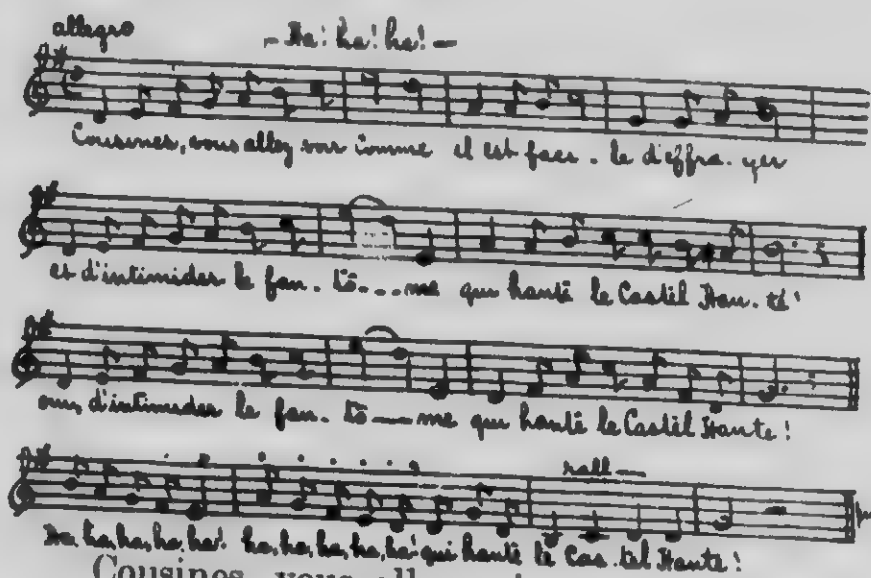 allegro - Ha! ha! ha! -
Cousines, vous allez voir comme il est faci - le d'effra - yer
et d'intimider le fan - tô - - - me qui hante le Castel Han - té!
oui, d'intimider le fan - tô — me qui hante le Castel Hante!
rall —
Ha, ha, ha, ha, ha! ha, ha, ha, ha, ha! qui hante le Cas - tel Hante!
Cousines, vous